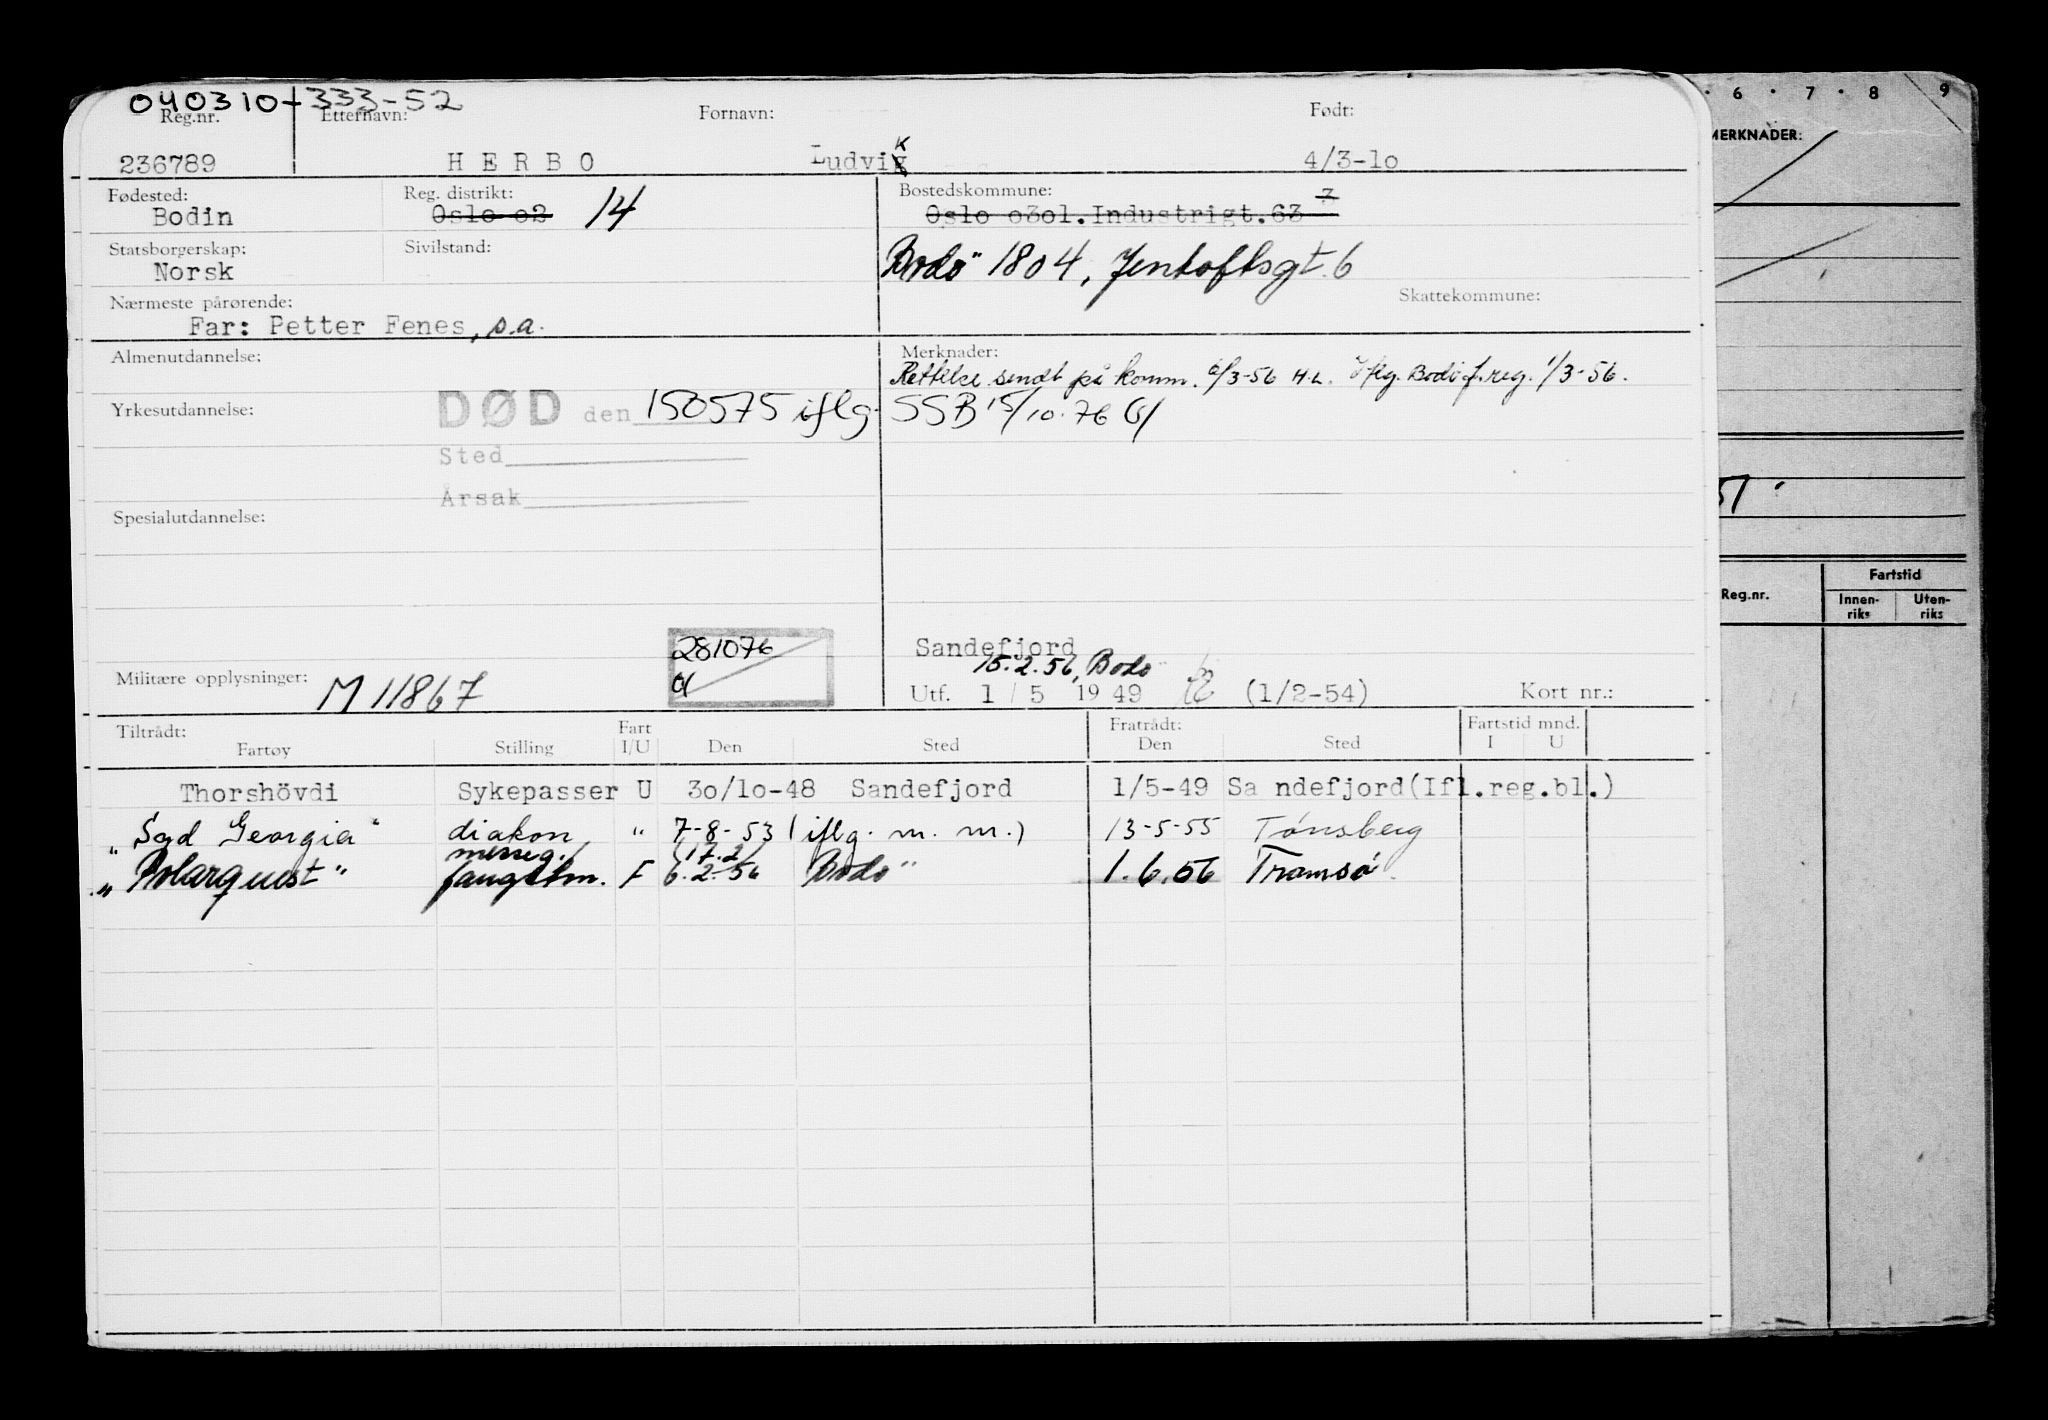 040310-333-52
Reg.nr. Etternavn: Fornavn: Født:
236789 HERBO Ludvik 4/3-1o
Fødested: Reg. distrikt: Bostedskommune:
Bodin Oslo o2 14 Oslo o3o1. Industrigt. 63 7
Statsborgerskap: Sivilstand:
Norsk Bodö 1804, Jentoftsgt. 6
Nærmeste pårørende: Skattekommune:
Far: Petter Fenes, s.a.
Almenutdannelse: Merknader:
Rettelse sendt på komm. 6/3-56 H.L. Iflg. Bodö f.reg. 1/3-56.
Yrkesutdannelse: DØD den 150575 iflg. SSB 15/10.76
Sted
Årsak
Spesialutdannelse:
281076
Sandefjord
15.2.56, Bodö
Militære opplysninger: M 11867 Utf. 1/5 1949 (1/2-54) Kort nr.:
Tiltrådt: Fart Fratrådt: Fartstid mnd.
Fartøy Stilling I/U Den Sted Den Sted I U
Thorshövdi Sykepasser U 3o/1o-48 Sandefjord 1/5-49 Sa ndefjord(Ifl.reg.bl.)
"Syd Georgia" diakon " 7-8-53 (iflg. m. m.) 13-5-55 Tønsberg
messeg./ (17.2)
"Polarquest" fangstm. F 6.2.56 Bodö 1.6.56 Tromsø
6 · 7 · 8 9
MERKNADER:
51.
Reg.nr. Fartstid
Innen-riks Uten-riks